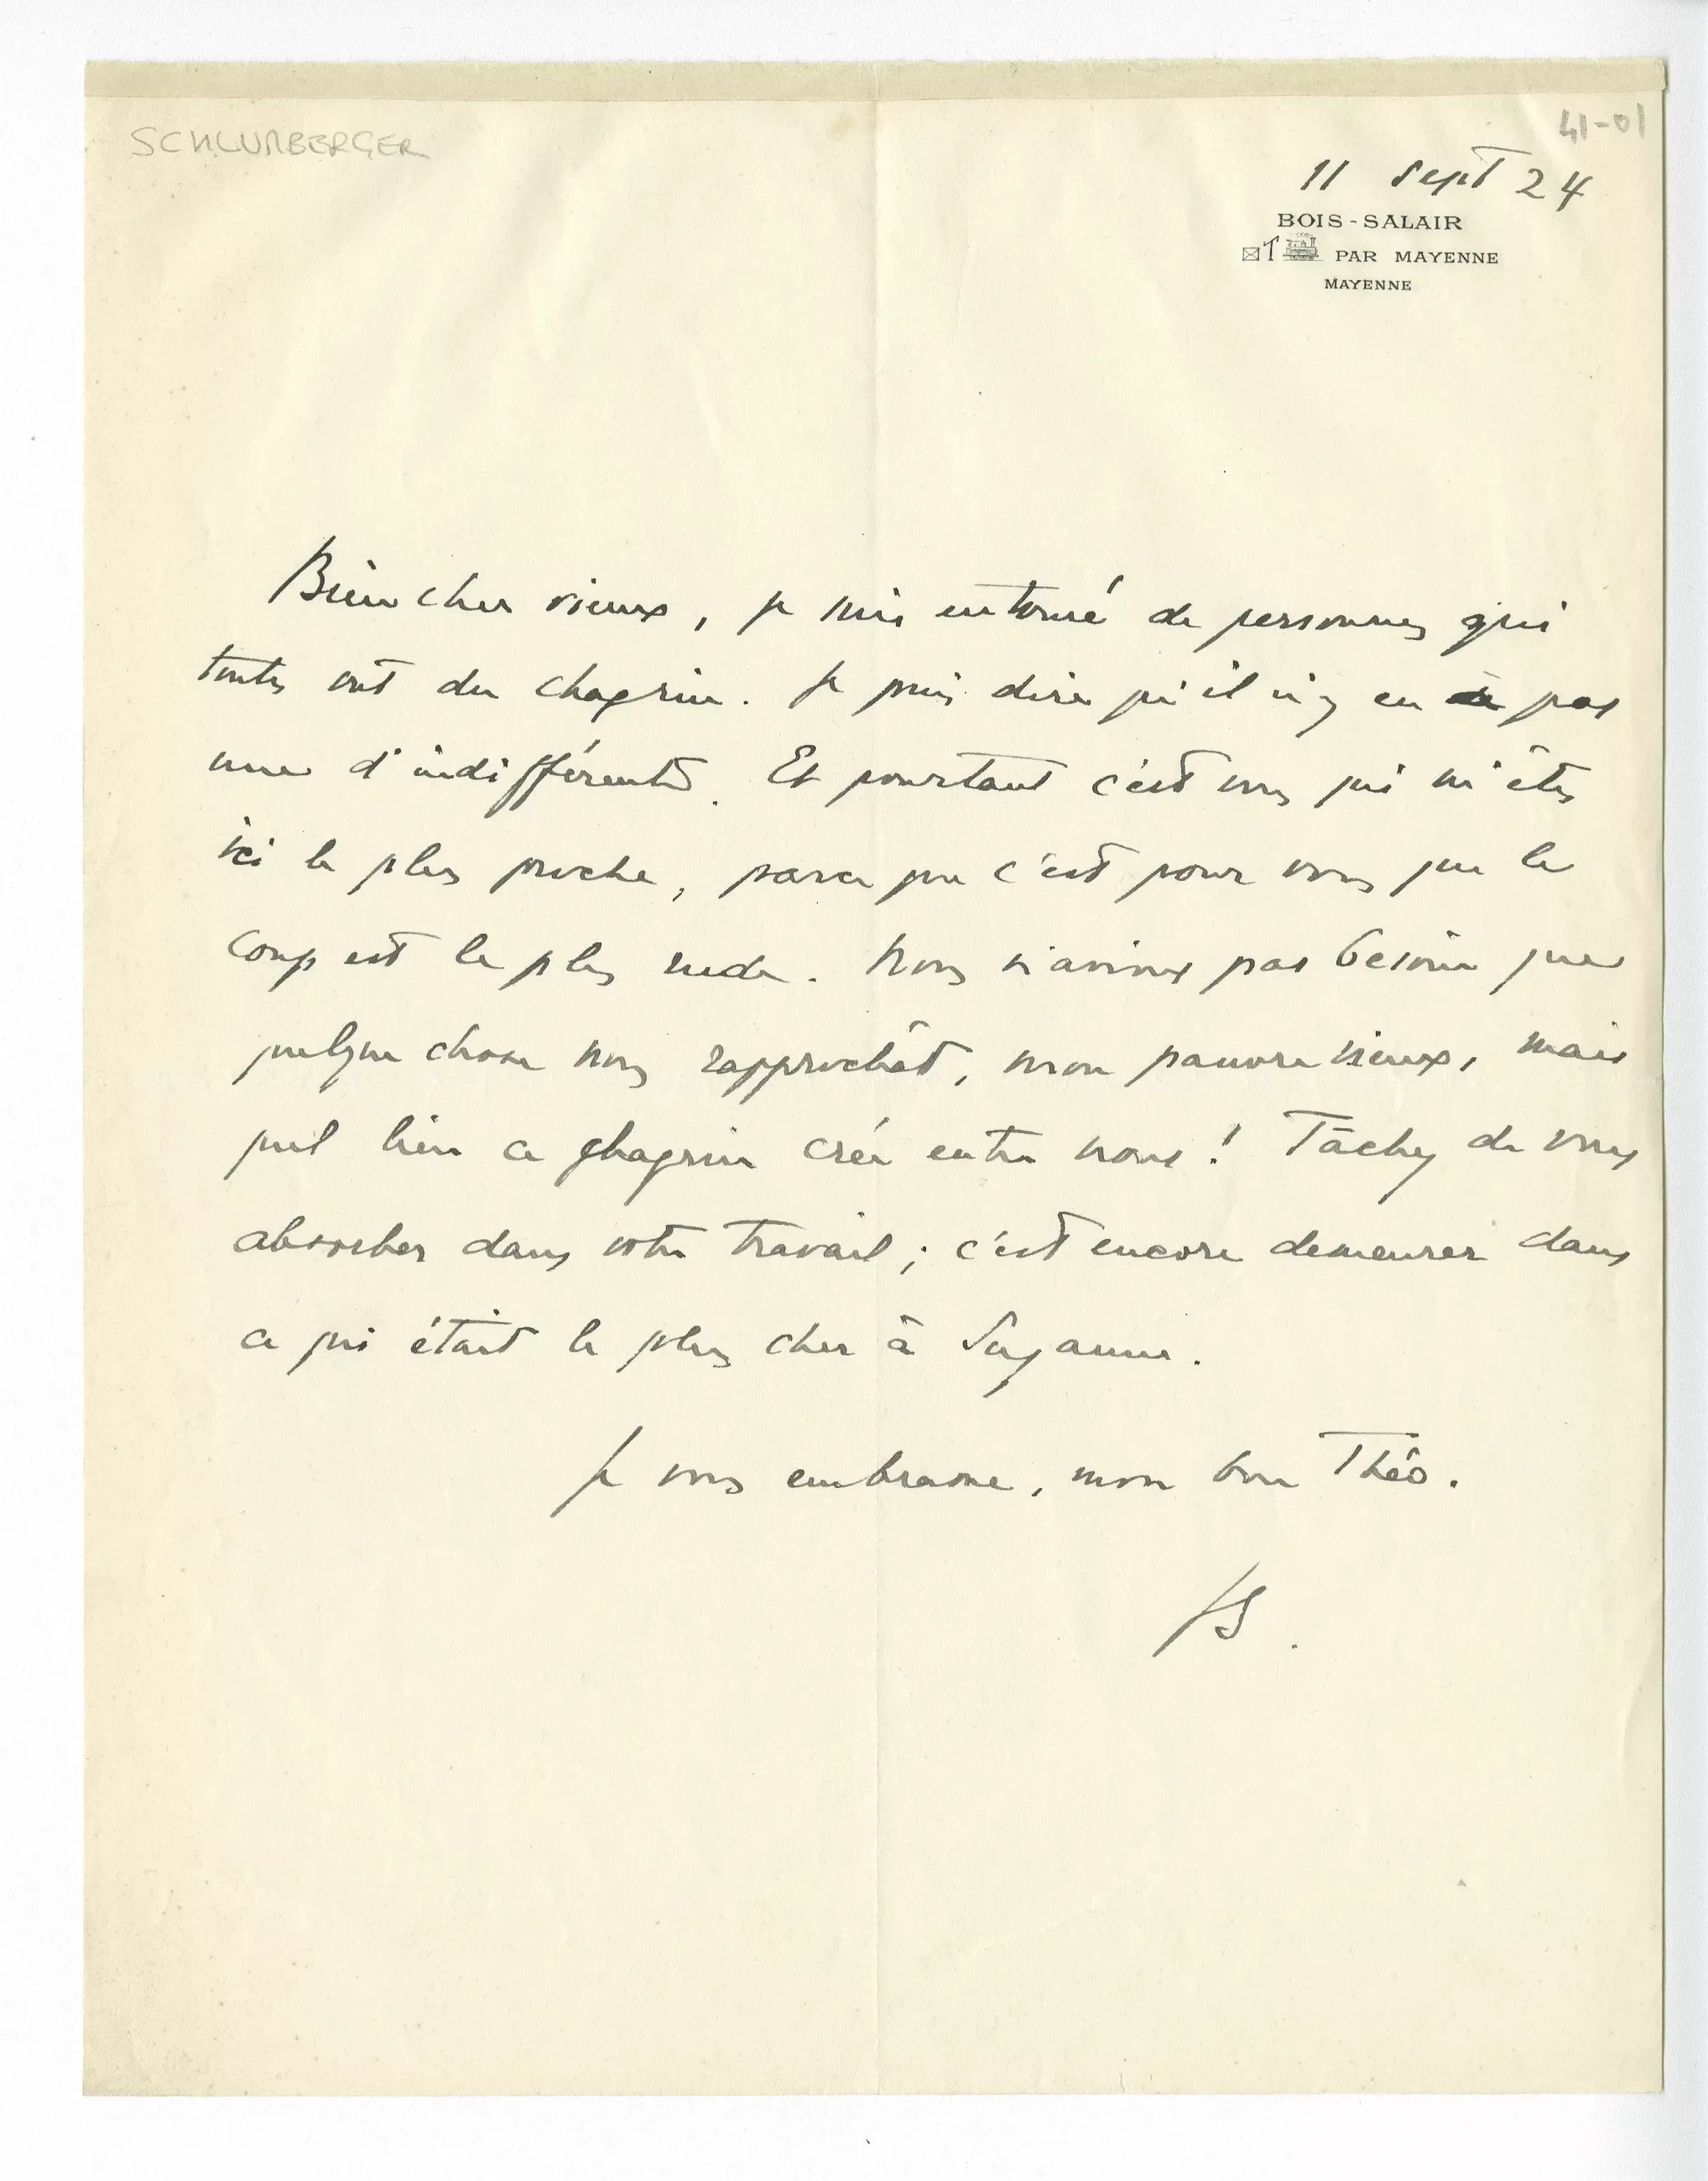 SCHLUMBERGER
41-01
11 Sept 24
BOIS-SALAIR
PAR MAYENNE
MAYENNE
Bien cher vieux, je suis entouré de personnes qui
toutes ont du chagrin. Je puis dire qu'il n'y en a pas
une d'indifférente. Et pourtant c'est vous qui m'êtes
ici le plus proche, parce que c'est pour vous que le
coup est le plus rude. Nous n'avions pas besoin que
quelque chose nous rapprochât, mon pauvre vieux, mais
quel lien ce chagrin crée entre nous ! Tâchez de vous
absorber dans votre travail ; c'est encore demeurer dans
ce qui était le plus cher à Suzanne.
Je vous embrasse, mon bon Théo.
JS.